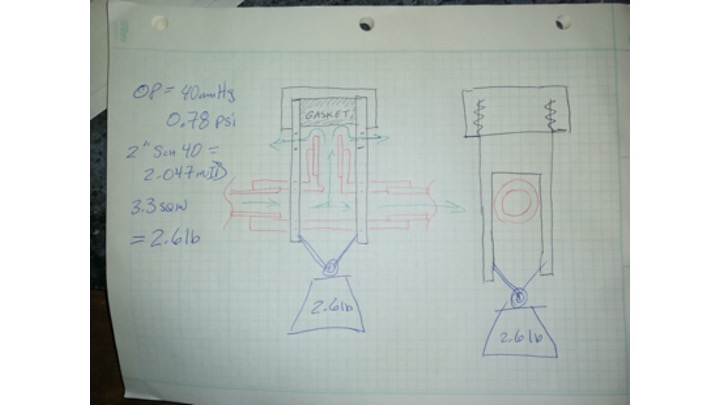 OP = 40mmHg
0.78 psi
2" Sch 40 =
2.047in ID
3.3 sqin
= 2.6lb
GASKET
2.6lb
2.6lb